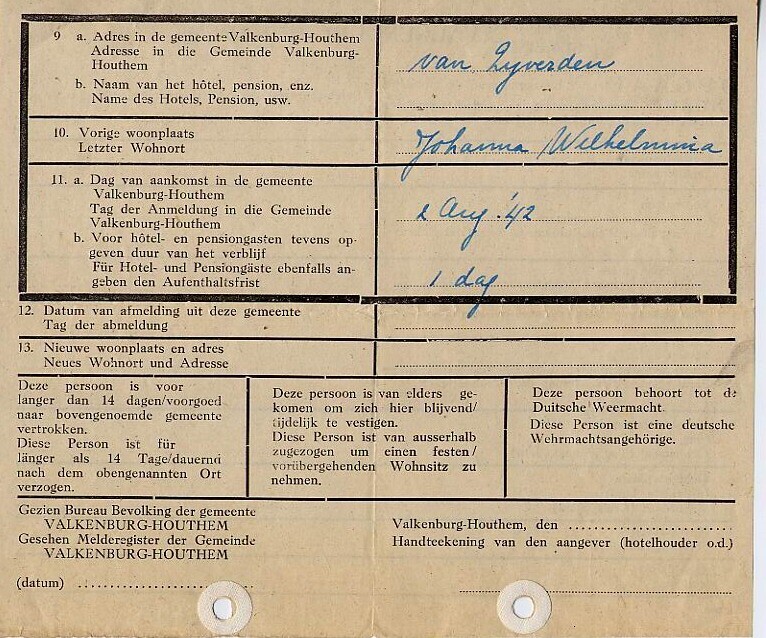 9 a. Adres in de gemeente Valkenburg-Houthem
Adresse in die Gemeinde Valkenburg-
Houthem
van Zyverden
b. Naam van het hôtel, pension, enz.
Name des Hotels, Pension, usw.
10. Vorige woonplaats
Letzter Wohnort
Johanna Wilhelmina
11. a. Dag van aankomst in de gemeente
Valkenburg-Houthem
Tag der Anmeldung in die Gemeinde
Valkenburg-Houthem
2 Aug. '42
b. Voor hôtel- en pensiongasten tevens op-
geven duur van het verblijf
Für Hotel- und Pensiongäste ebenfalls an-
geben den Aufenthaltsfrist
1 dag
12. Datum van afmelding uit deze gemeente
Tag der abmeldung
13. Nieuwe woonplaats en adres
Neues Wohnort und Adresse
Deze persoon is voor
langer dan 14 dagen/voorgoed
naar bovengenoemde gemeente
vertrokken.
Diese Person ist für
länger als 14 Tage/dauernd
nach dem obengenannten Ort
verzogen.
Deze persoon is van elders ge-
komen om zich hier blijvend/
tijdelijk te vestigen.
Diese Person ist van ausserhalb
zugezogen um einen festen/
vorübergehenden Wohnsitz zu
nehmen.
Deze persoon behoort tot de
Duitsche Weermacht.
Diese Person ist eine deutsche
Wehrmachtsangehörige.
Gezien Bureau Bevolking der gemeente
VALKENBURG-HOUTHEM
Gesehen Melderegister der Gemeinde
VALKENBURG-HOUTHEM
(datum)
Valkenburg-Houthem, den
Handteekening van den aangever (hotelhouder o.d.)